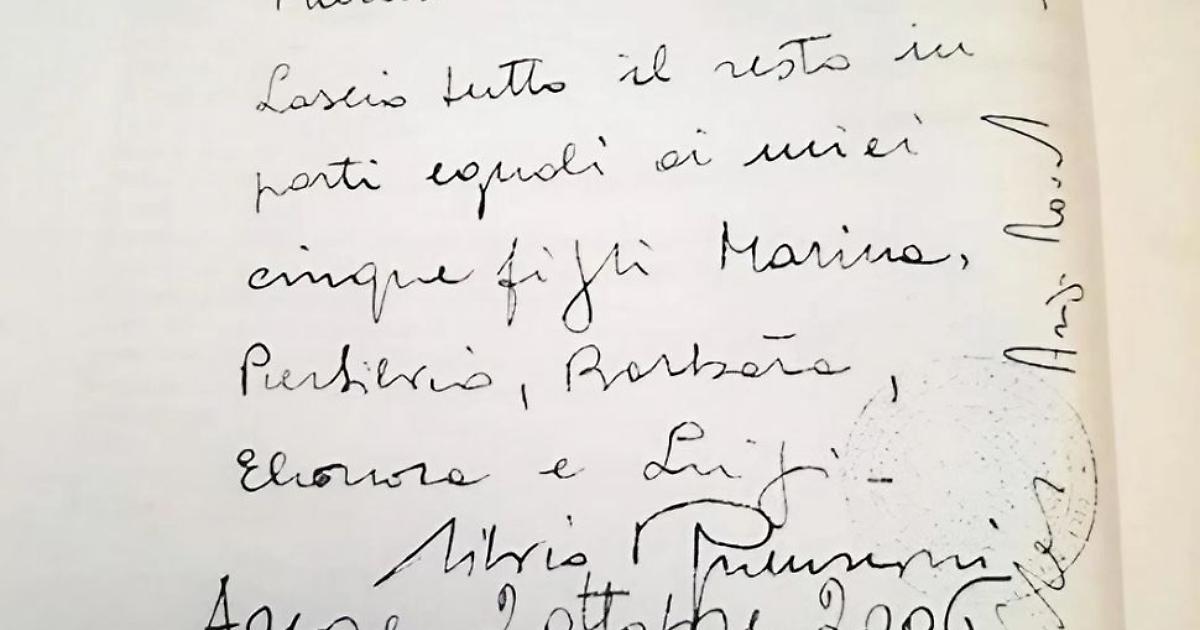 Lascio tutto il resto in
parti eguali ai miei
cinque figli Marina,
Piersilvio, Barbara,
Eleonora e Luigi -
Silvio Berlusconi
2 ottobre 2006